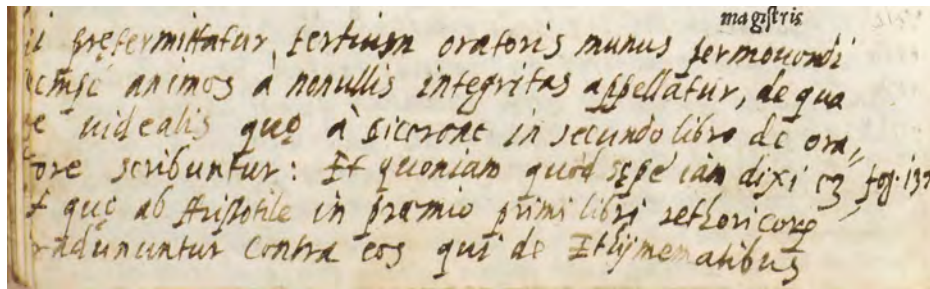 magistris
pręfermittatur, tertium oratoris munus permouondi
animos à nonullis integritas appellatur, de qua
uidealis quę à Cicerone in secundo libro de ora,,
tore scribuntur: Et quoniam quod sępe iam dixi fog. 137
quę ab Aristotile in proemio primi libri rethoricorꝝ
tradununtur contra eos qui de Ethijmematibus